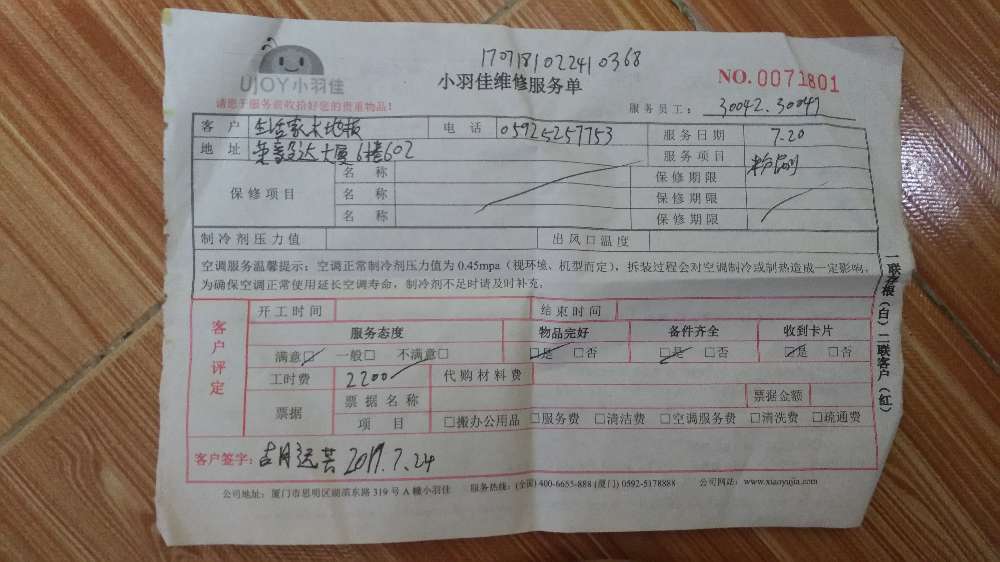 1707181022410368
UJOY小羽佳
小羽佳维修服务单
NO.0071801
请您于服务前收拾好您的贵重物品!
服务员工: 30042.30047
客户 生活家木地板 电话 05925257753 服务日期 7.20
地址 大厦6楼602 服务项目 粉刷
保修项目 名称 保修期限
名称 保修期限
名称 保修期限
制冷剂压力值 出风口温度
空调服务温馨提示:空调正常制冷剂压力值为0.45mpa(视环境、机型而定),拆装过程会对空调制冷或制热造成一定影响。
为确保空调正常使用延长空调寿命,制冷剂不足时请及时补充。
一联存根(白)二联客户(红)
客户评定
开工时间 结束时间
服务态度 物品完好 备件齐全 收到卡片
满意☑ 一般□ 不满意□ ☑是 □否 ☑是 □否 ☑是 □否
工时费 2200 代购材料费
票据 票据名称 票据金额
项目 □搬办公用品 □服务费 □清洁费 □空调服务费 □清洗费 □疏通费
客户签字: 2017.7.24
公司地址:厦门市思明区湖滨东路319号A幢小羽佳 服务热线:(全国)400-6655-888 (厦门) 0592-5178888 公司网站:www.xiaoyujia.com